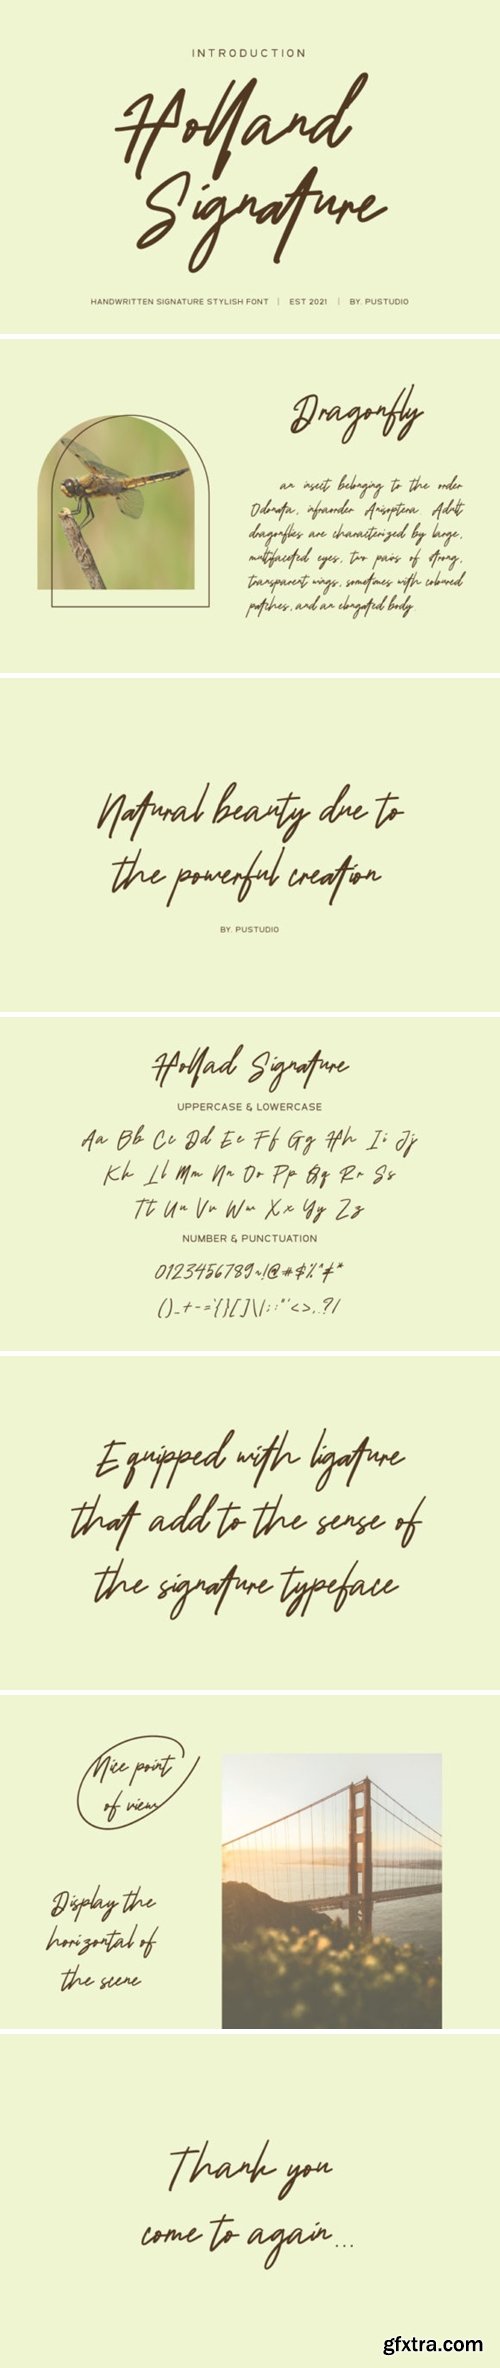 INTRODUCTION
Holland
Signature
HANDWRITTEN SIGNATURE STYLISH FONT | EST 2021 | BY. PUSTUDIO
Dragonfly
an insect belonging to the order
Odonata, infraorder Anisoptera. Adult
dragonflies are characterized by large,
multifaceted eyes, two pairs of strong,
transparent wings, sometimes with coloured
patches, and an elongated body
Natural beauty due to
the powerful creation
BY. PUSTUDIO
Hollad Signature
UPPERCASE & LOWERCASE
Aa Bb Cc Dd Ee Ff Gg Hh Ii Jj
Kk Ll Mm Nn Oo Pp Qq Rr Ss
Tt Uu Vv Ww Xx Yy Zz
NUMBER & PUNCTUATION
0123456789~!@#$%^&*
()_+-={}[]\|;:"'<>,.?/
Equipped with ligature
that add to the sense of
the signature typeface
Nice point
of view
Display the
horizontal of
the scene
Thank you
come to again...
gfxtra.com